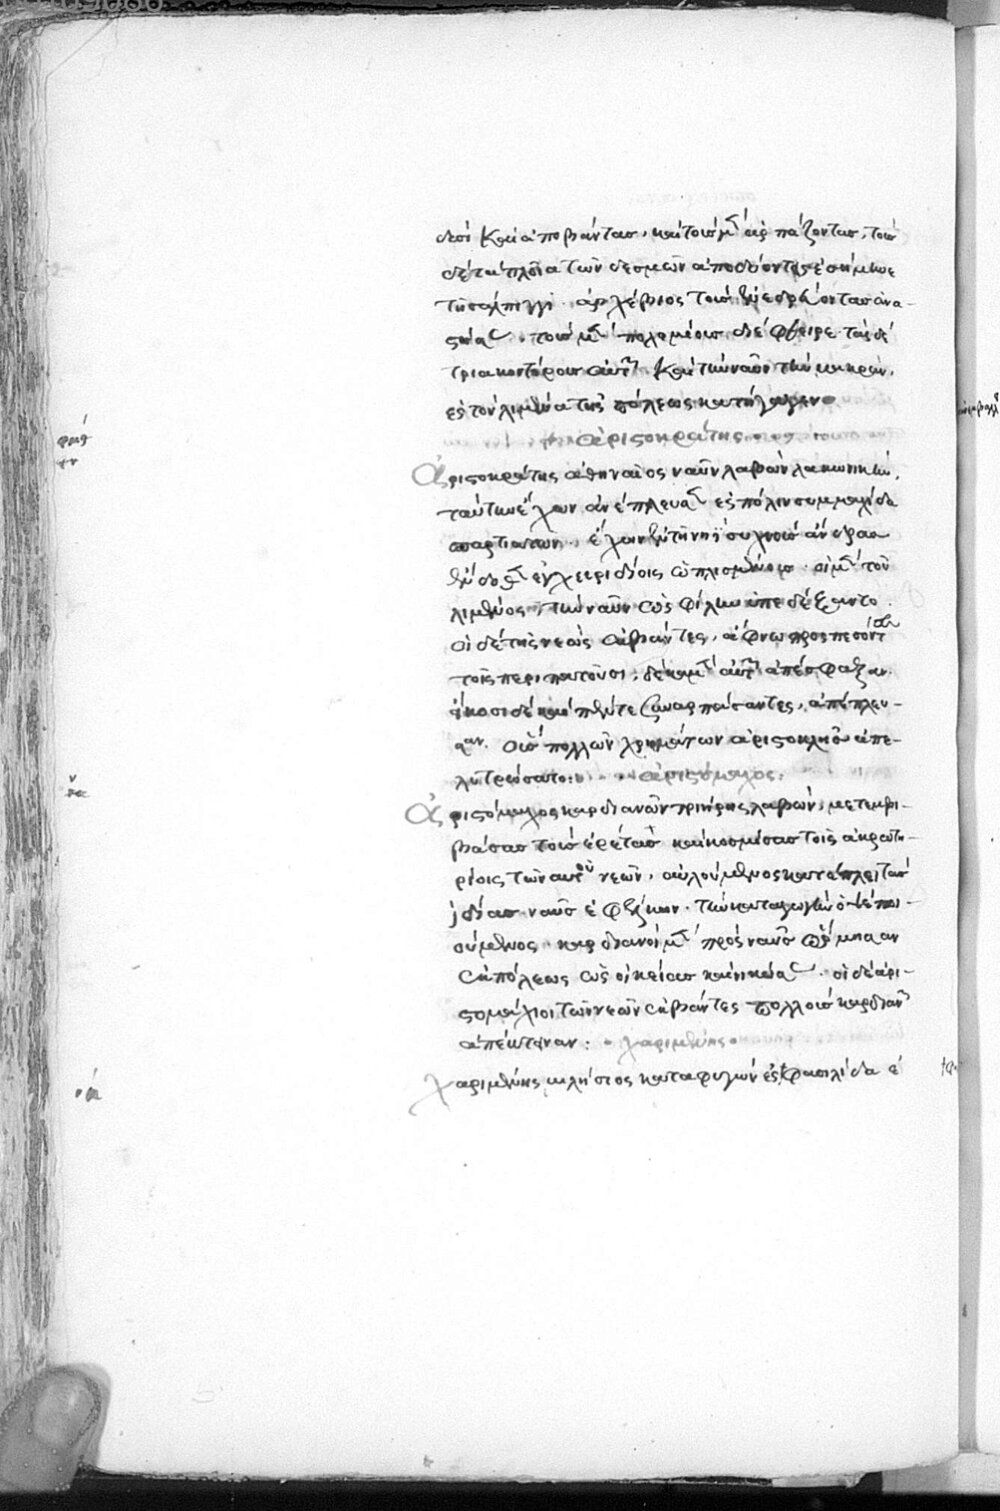 δεσὶ καὶ ἀποβάντας, καὶ τοὺς μὲν ἁρπάζοντας, τοὺς
δὲ τὰ πλοῖα τῶν δεσμῶν ἀποδέοντας ἐσήμηνε
τῇ σάλπιγγι. ἀρχέβιος τοὺς ἐνεδρεύοντας ἀνα-
στήσας, τοὺς μὲν πολεμίους διέφθειρε τὰς δὲ
τριακοντόρους αὐτῶν καὶ τὴν ναῦν τὴν μακρὰν,
ἐς τὸν λιμένα τῆς πόλεως κατήγαγεν
ἀριστοκράτης
Ἀριστοκράτης ἀθηναῖος ναῦν λαβὼν λακωνικὴν,
ταύτην ἔχων ἀνέπλευσεν ἐς πόλιν συμμαχίδα
σπαρτιατῶν. ἔχων ἐν τῇ νηῒ συχνοὺς ἄνδρας
ἔνδον ἐγχειριδίοις ὡπλισμένους. οἱ μὲν τοῦ
λιμένος, τὴν ναῦν ὡς φίλην ὑπεδέξαντο.
οἱ δὲ τῆς νεὼς ἐκβάντες, ἄφνω προσπεσόντες
τοῖς περιπατοῦσι, δέκα μὲν αὐτῶν ἀπέσφαξαν.
εἴκοσι δὲ καὶ πέντε ξυναρπάσαντες, ἀπέπλευ-
σαν. οὓς πολλῶν χρημάτων ἀριστοκλῆς ἀπε-
λυτρώσατο: ἀριστόμαχος:
Ἀριστόμαχος καρδιανῶν τριήρης λαβών, μετεμβι-
βάσας τοὺς ἐρέτας καὶ κοσμίσας τοῖς ἀκρωτη-
ρίοις τῶν αὐτοῦ νεῶν, αὐλούμενος κατέπλει τὰς
ἰδίας ναῦς ἐφέλκων. τὴν καταγωγὴν ὀψὲ ποι-
ούμενος. καρδιανοὶ μὲν πρὸς ναῦς ὥρμησαν
ἐκ πόλεως ὡς οἰκείας καὶ νικώσας. οἱ δὲ ἀρι-
στομάχιοι τῶν νεῶν ἐκβάντες πολλοὺς καρδιανῶν
ἀπέκτειναν: χαριμένης
Χαριμένης μιλήσιος καταφυγὼν ἐς φασιλίδα ἐ